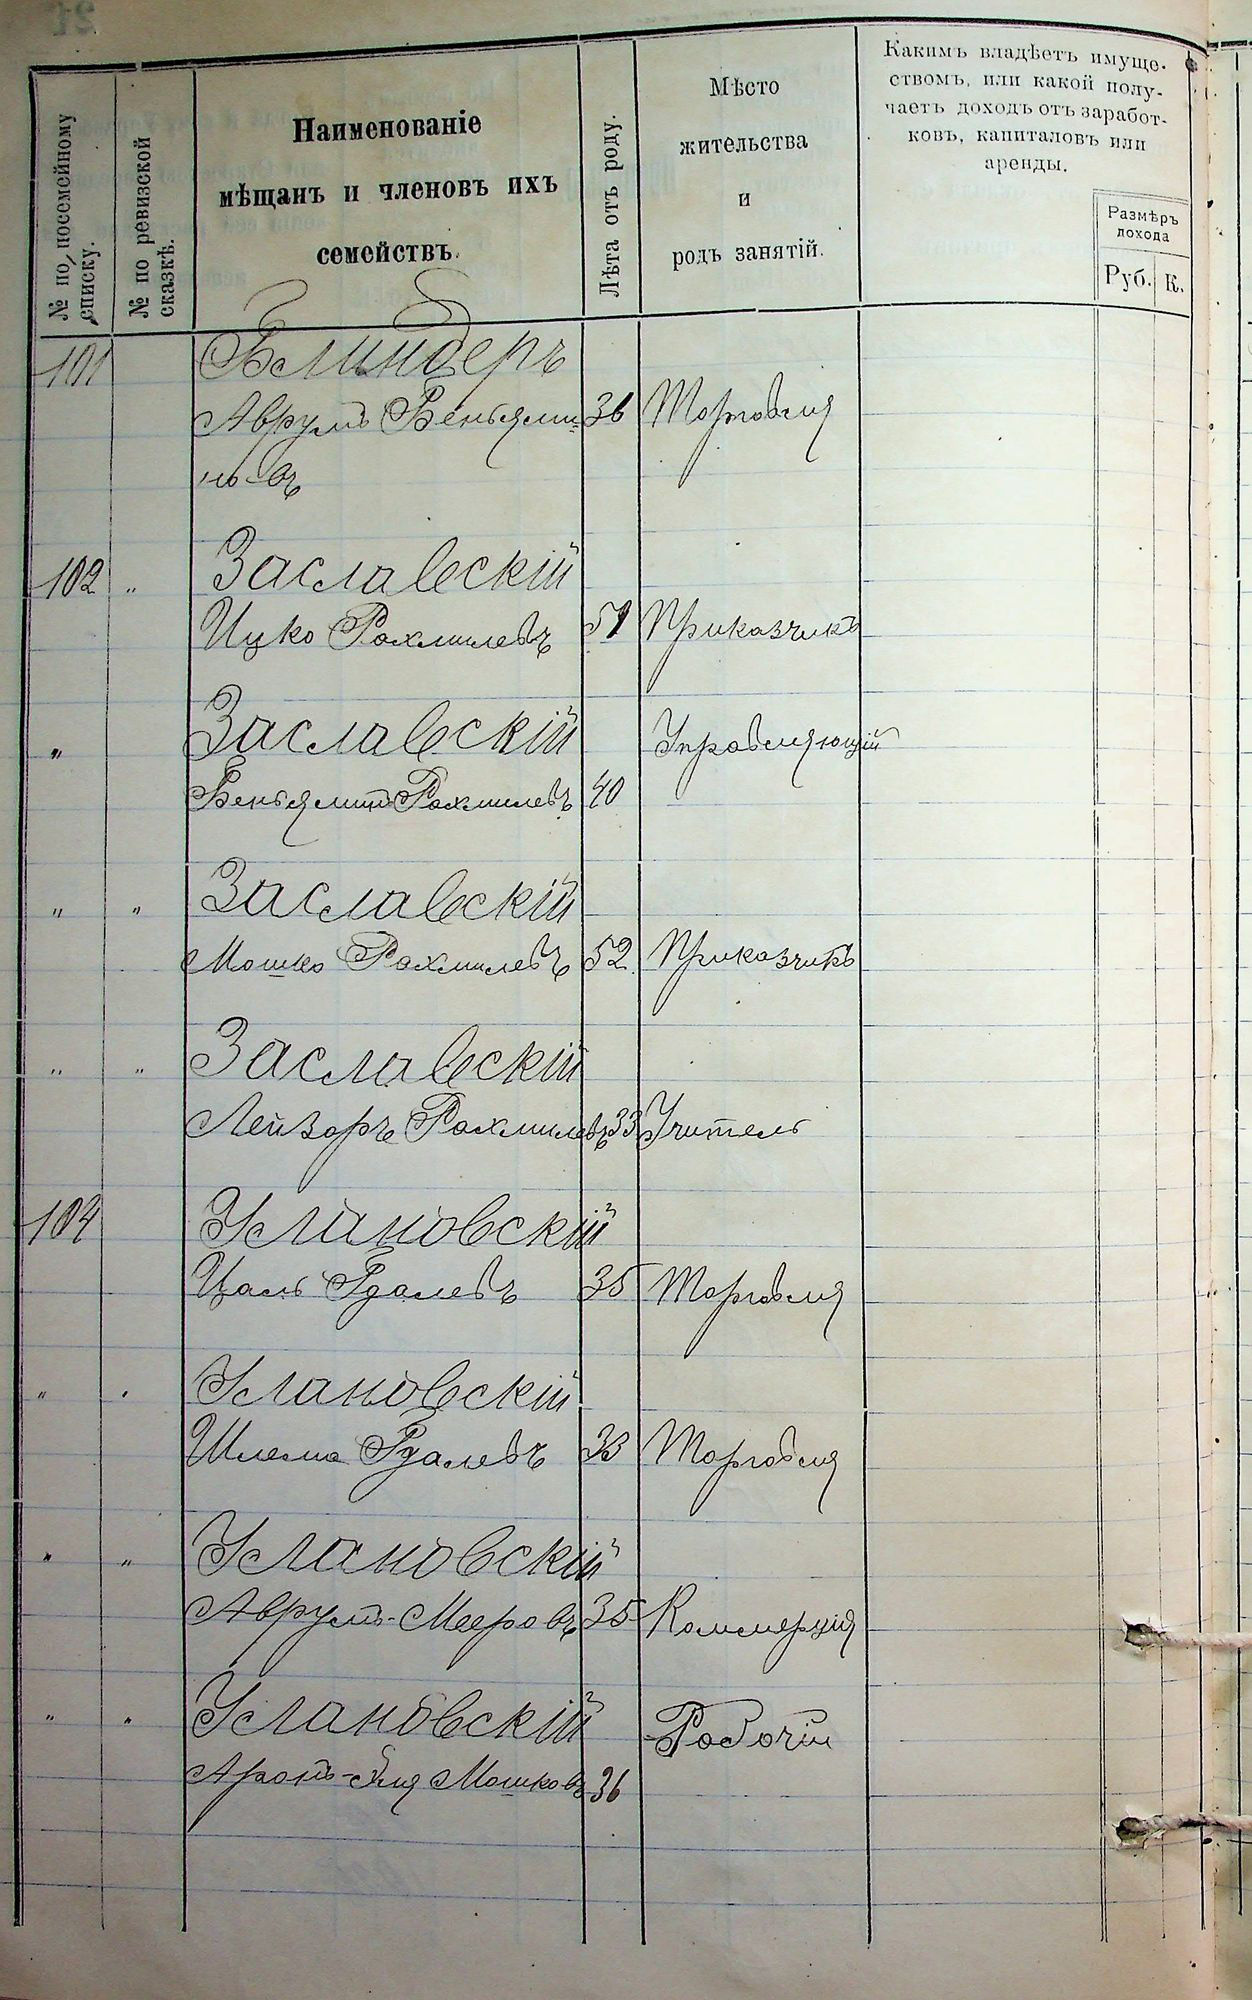 № по посемейному списку.
№ по ревизской сказкѣ.
Наименованіе
мѣщанъ и членовъ ихъ
семействъ.
Лѣта отъ роду.
Мѣсто
жительства
и
родъ занятій.
Какимъ владѣетъ имуще-
ствомъ, или какой полу-
чаетъ доходъ отъ заработ-
ковъ, капиталовъ или
аренды.
Размѣръ
дохода
Руб. К.
101 Блиндеръ
Аврумъ Беньями- 36 Торговля
но-въ
102 " Заславскій
Ицко Рахмилевъ 51 Приказчикъ
" Заславскій Управляющій
Беньяминъ Рахмилевъ 40
" " Заславскій
Мошко Рахмилевъ 52 Приказчикъ
" " Заславскій
Лейзоръ Рахмилевъ 33 Учитель
104 Улановскій
Цаль Удалевъ 35 Торговля
" " Улановскій
Шлема Удалевъ 33 Торговля
" " Улановскій
Аврумъ-Мееровъ 35 Коммерція
" " Улановскій Рабочій
Аронъ-Эля Мошковъ 36